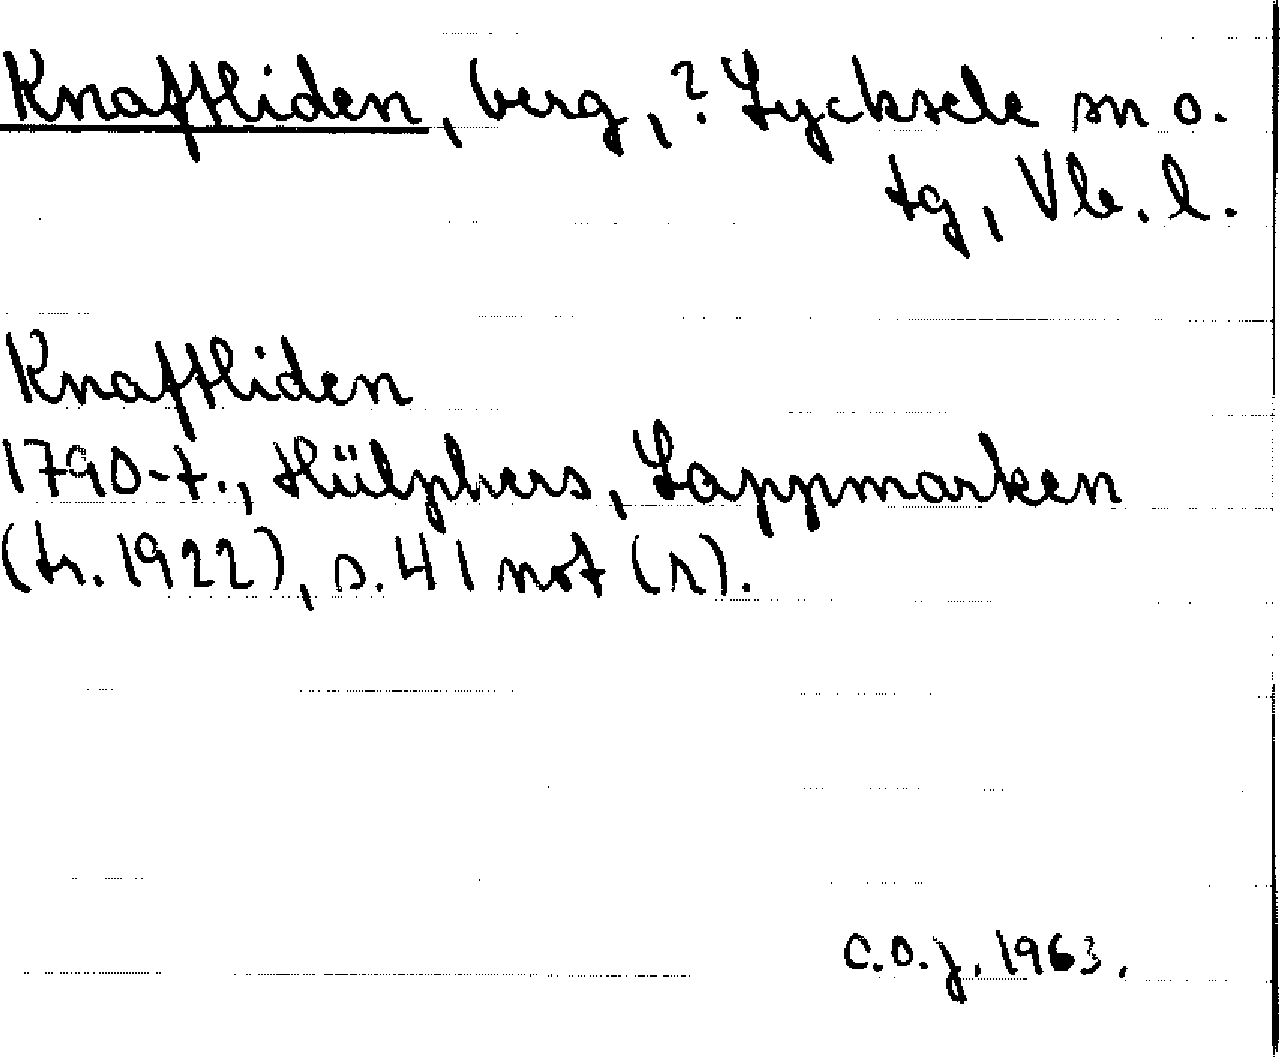 Knaftliden, berg, ? Lycksele sn o.
tg, Vb. l.
Knaftliden
1790-t., Hülphers, Lappmarken
(tr. 1922), s. 41 not (r).
C.O.J. 1963.